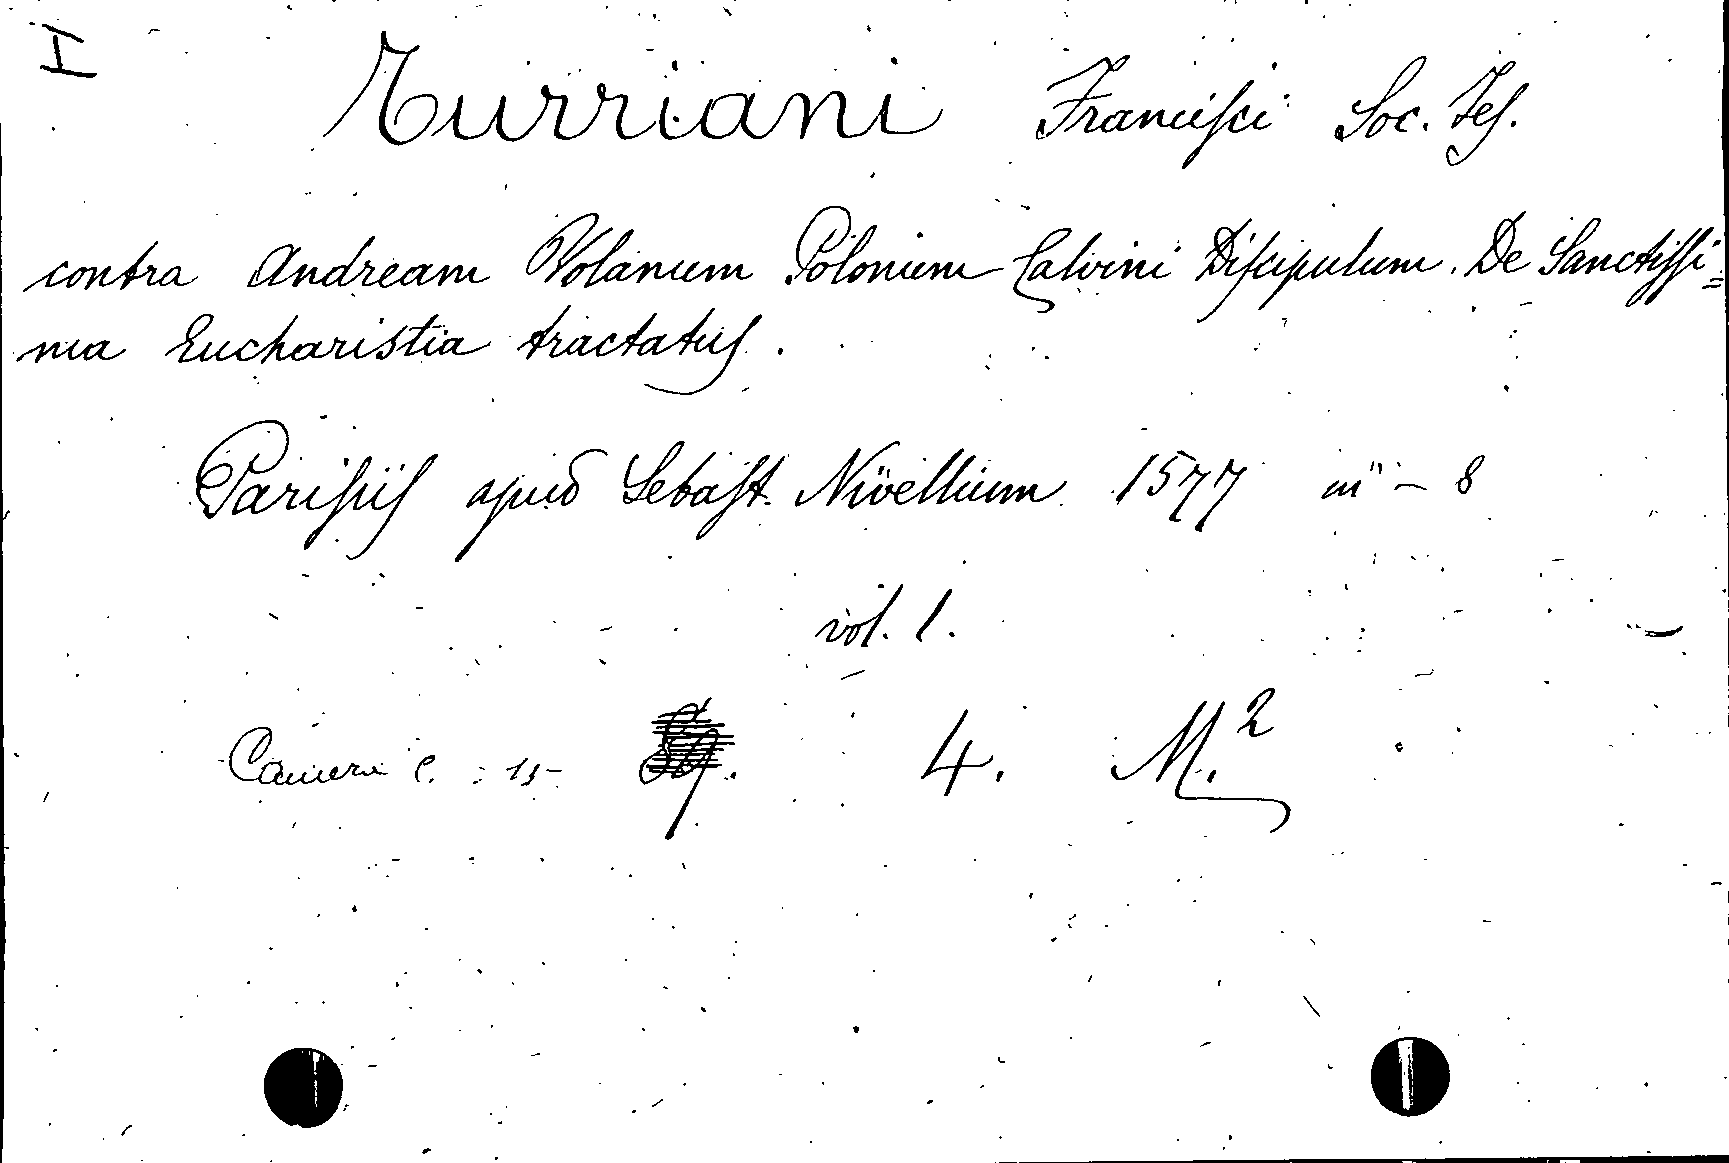 I
Turriani Francisci Soc. Jes.
contra Andream Volanum Polonum Calvini Discipulum. De Sanctissi=
ma Eucharistia tractatus.
Parisiis apud Sebast. Nivellium 1577 in - 8
vol. 1.
Camera C. : 15- 4. M.²